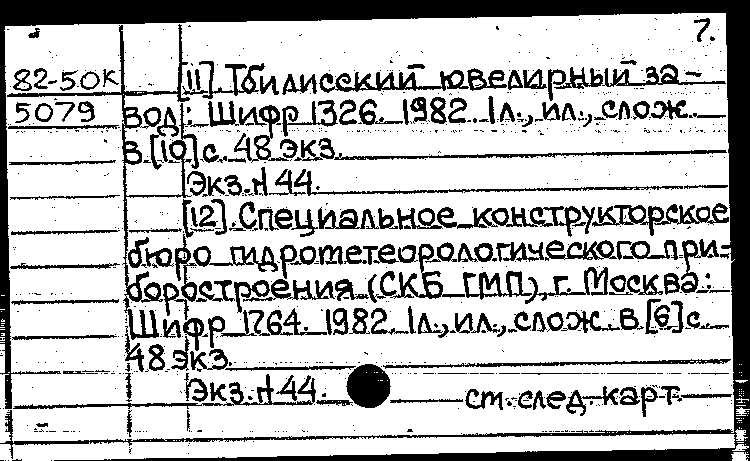 7.
82-50к [11]. Тбилисский ювелирный за-
5079 вод: Шифр 1326. 1982. 1л., ил., слож.
в [10] с. 48 экз.
Экз. N 44.
[12]. Специальное конструкторское
бюро гидрометеорологического при-
боростроения (СКБ ГМП), г. Москва:
Шифр 1764. 1982. 1л., ил., слож. в [6] с.
48 экз.
Экз. N 44.
см. след. карт.